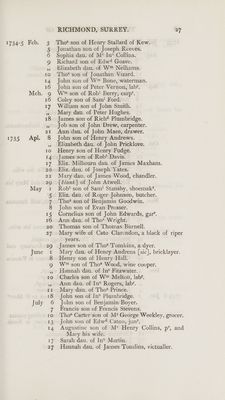 RICHMOND, SURREY. 27
1734-5 Feb. 3 Thoˢ son of Henry Stallard of Kew.
5 Jonathan son of Joseph Reeves.
6 Sophia dau. of Mʳ Inᵒ Collins.
9 Richard son of Edwᵈ Goave.
„ Elizabeth dau. of Wᵐ Nelhams.
10 Thoˢ son of Jonathan Vizard.
14 John son of Wᵐ Bone, waterman.
16 John son of Peter Vernon, labʳ.
Mch. 9 Wᵐ son of Robᵗ Berry, carpʳ.
16 Coley son of Samˡ Ford.
17 William son of John Smith.
„ Mary dau. of Peter Hughes.
18 James son of Richᵈ Plumbridge.
„ Job son of John Drew, carpenter.
21 Ann dau. of John Maze, drawer.
1735 Apl. 8 John son of Henry Andrews.
„ Elizabeth dau. of John Pricklove.
10 Henry son of Henry Fudge.
14 James son of Robᵗ Davis.
17 Eliz. Milbourn dau. of James Maxham.
20 Eliz. dau. of Joseph Yates.
22 Mary dau. of James Wood, chandler.
29 [blank] of John Atwell.
May 1 Robᵗ son of Samˡ Stansby, shoemakʳ.
5 Eliz. dau. of Roger Johnson, butcher.
7 Thoˢ son of Benjamin Goodwin.
8 John son of Evan Prosser.
15 Cornelius son of John Edwards, garʳ.
16 Ann dau. of Thoˢ Wright.
20 Thomas son of Thomas Birnell.
27 Mary wife of Cato Clarendon, a black of riper
years.
29 James son of Thoˢ Tomkins, a dyer.
June 1 Mary dau. of Henry Andrens [sic], bricklayer.
8 Henry son of Henry Hall.
9 Wᵐ son of Thoˢ Wood, wine cooper.
„ Hannah dau. of Inᵒ Fitzwater.
10 Charles son of Wᵐ Melton, labʳ.
„ Ann dau. of Inᵒ Rogers, labʳ.
11 Mary dau. of Thoˢ Prince.
18 John son of Inᵒ Plumbridge.
July 6 John son of Benjamin Boyer.
7 Francis son of Francis Stevens.
10 Thoˢ Carter son of Mʳ George Weekley, grocer.
13 John son of Edwᵈ Caton, junʳ.
14 Augustine son of Mʳ Henry Collins, pʳ, and
Mary his wife.
17 Sarah dau. of Inᵒ Martin.
27 Hannah dau. of James Tomlin, victualler.